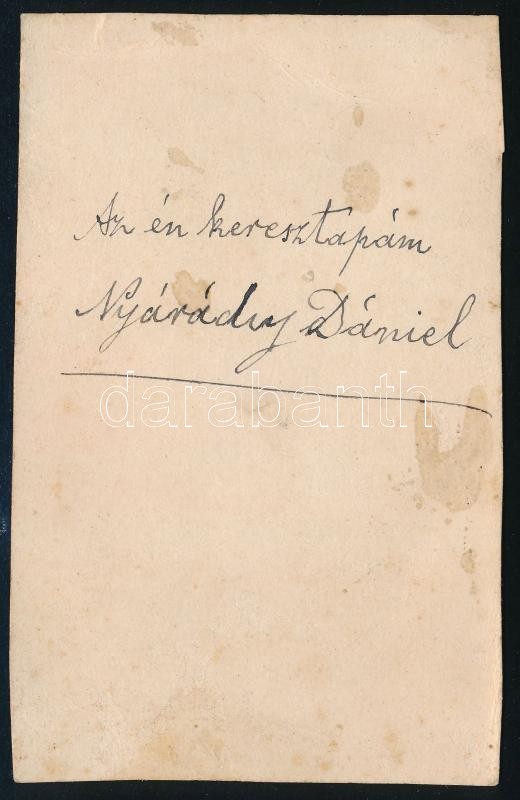 Az én keresztapám
Nyárády Dániel
darabanth